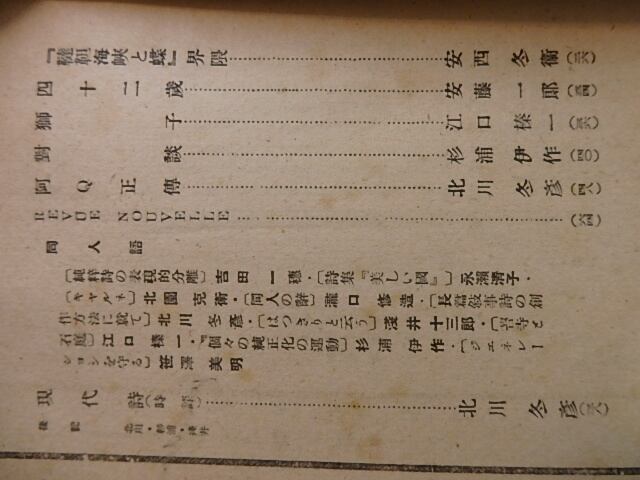 『韃靼海峡と蝶』界隈……安西冬衞(三六)
四十二歳……安藤一郎(三四)
獅子……江口榛一(三六)
對談……杉浦伊作(四〇)
阿Q正傳……北川冬彥(四八)
REVUE NOUVELLE……(六四)
同人語
〔純粹詩の表現的分離〕吉田一穗・〔詩集『美しい國』〕永瀨淸子・
〔キャルネ〕北園克衞・〔同人の辭〕瀧口修造・〔長篇敍事詩の創
作方法に就て〕北川冬彥・〔はつきりと云う〕淺井十三郎・〔苔寺と
石庭〕江口榛一・〔個々の純正化の運動〕杉浦伊作・〔ジエネレー
ションを守る〕笹澤美明
現代詩(時評)……北川冬彥
後記 北川・杉浦・淺井